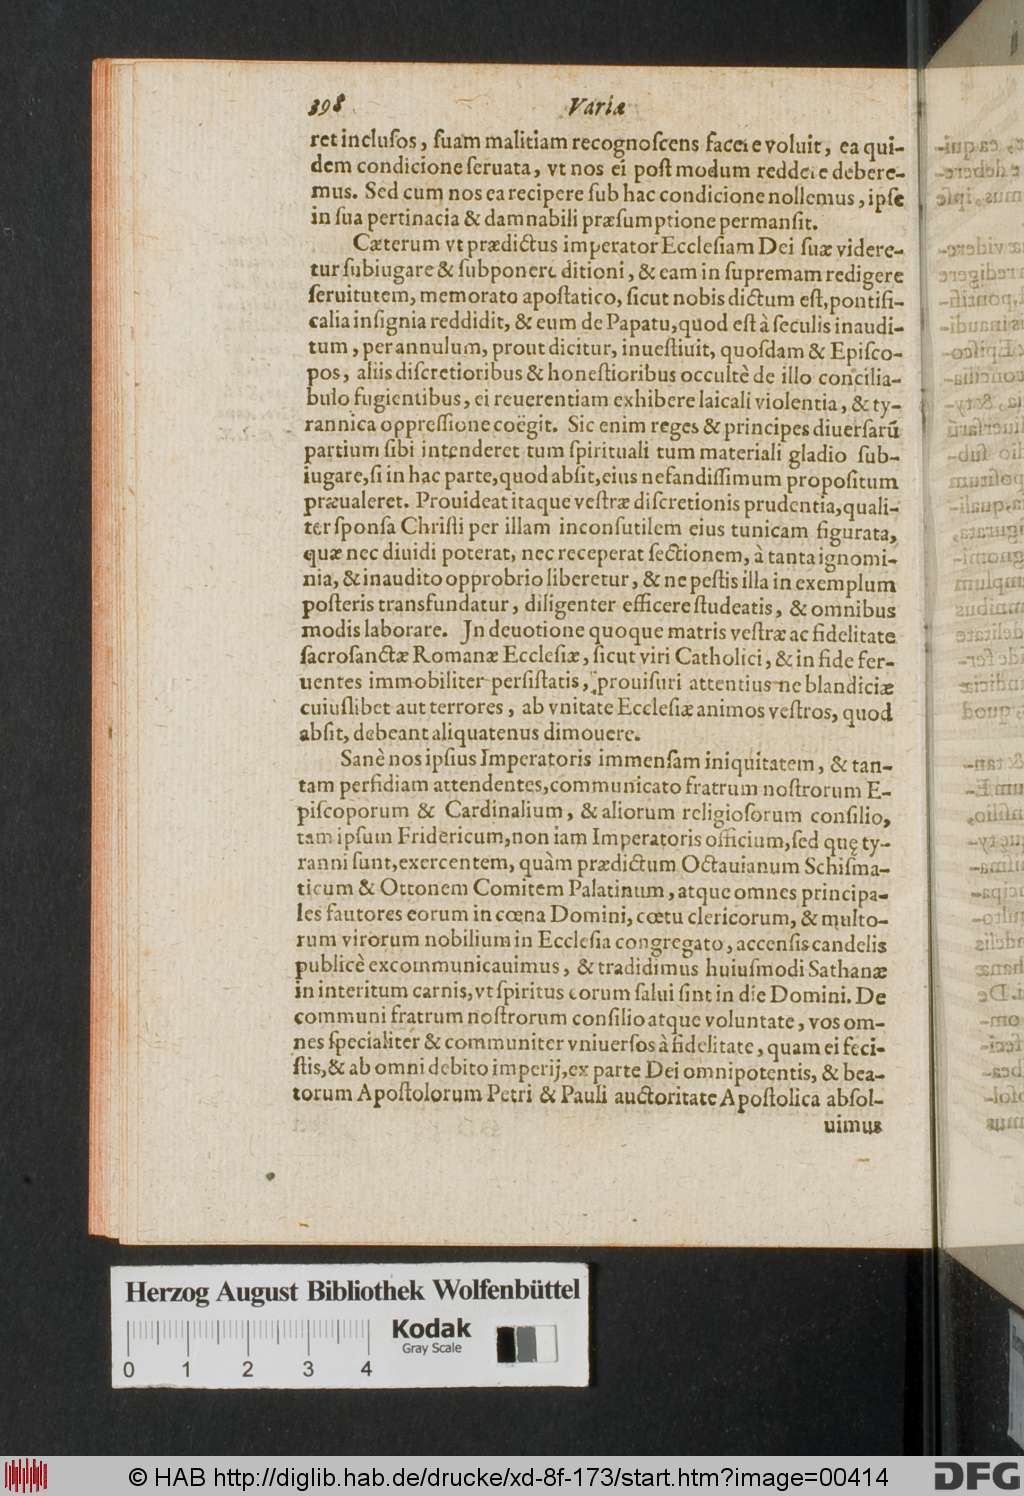 398 Variæ
ret incluſos, ſuam malitiam recognoſcens facere voluit, ea qui-
dem condicione ſeruata, vt nos ei poſtmodum reddere debere-
mus. Sed cum nos ea recipere ſub hac condicione nollemus, ipſe
in ſua pertinacia & damnabili præſumptione permanſit.
Cæterum vt prædictus imperator Eccleſiam Dei ſuæ videre-
tur ſubiugare & ſubponere ditioni, & eam in ſupremam redigere
ſeruitutem, memorato apoſtatico, ſicut nobis dictum eſt, pontifi-
calia inſignia reddidit, & eum de Papatu, quod eſt à ſeculis inaudi-
tum, per annulum, prout dicitur, inueſtiuit, quoſdam & Epiſco-
pos, aliis diſcretioribus & honeſtioribus occultè de illo concilia-
bulo fugientibus, ei reuerentiam exhibere laicali violentia, & ty-
rannica oppreſſione coëgit. Sic enim reges & principes diuerſarū
partium ſibi intenderet tum ſpirituali tum materiali gladio ſub-
iugare, ſi in hac parte, quod abſit, eius nefandiſſimum propoſitum
præualeret. Prouideat itaque veſtræ diſcretionis prudentia, quali-
ter ſponſa Chriſti per illam inconſutilem eius tunicam figurata,
quæ nec diuidi poterat, nec receperat ſectionem, à tanta ignomi-
nia, & inaudito opprobrio liberetur, & ne peſtis illa in exemplum
poſteris transfundatur, diligenter efficere ſtudeatis, & omnibus
modis laborare. Jn deuotione quoque matris veſtræ ac fidelitate
ſacroſanctæ Romanæ Eccleſiæ, ſicut viri Catholici, & in fide fer-
uentes immobiliter perſiſtatis, prouiſuri attentius ne blandiciæ
cuiuſlibet aut terrores, ab vnitate Eccleſiæ animos veſtros, quod
abſit, debeant aliquatenus dimouere.
Sanè nos ipſius Imperatoris immenſam iniquitatem, & tan-
tam perfidiam attendentes, communicato fratrum noſtrorum E-
piſcoporum & Cardinalium, & aliorum religioſorum conſilio,
tam ipſum Fridericum, non iam Imperatoris officium, ſed quę ty-
ranni ſunt, exercentem, quàm prædictum Octauianum Schiſma-
ticum & Ottonem Comitem Palatinum, atque omnes principa-
les fautores eorum in cœna Domini, cœtu clericorum, & multo-
rum virorum nobilium in Eccleſia congregato, accenſis candelis
publicè excommunicauimus, & tradidimus huiuſmodi Sathanæ
in interitum carnis, vt ſpiritus eorum ſalui ſint in die Domini. De
communi fratrum noſtrorum conſilio atque voluntate, vos om-
nes ſpecialiter & communiter vniuerſos à fidelitate, quam ei feci-
ſtis, & ab omni debito imperij, ex parte Dei omnipotentis, & bea-
torum Apoſtolorum Petri & Pauli auctoritate Apoſtolica abſol-
uimus
Herzog August Bibliothek Wolfenbüttel
Kodak
Gray Scale
0 1 2 3 4
© HAB http://diglib.hab.de/drucke/xd-8f-173/start.htm?image=00414
DFG